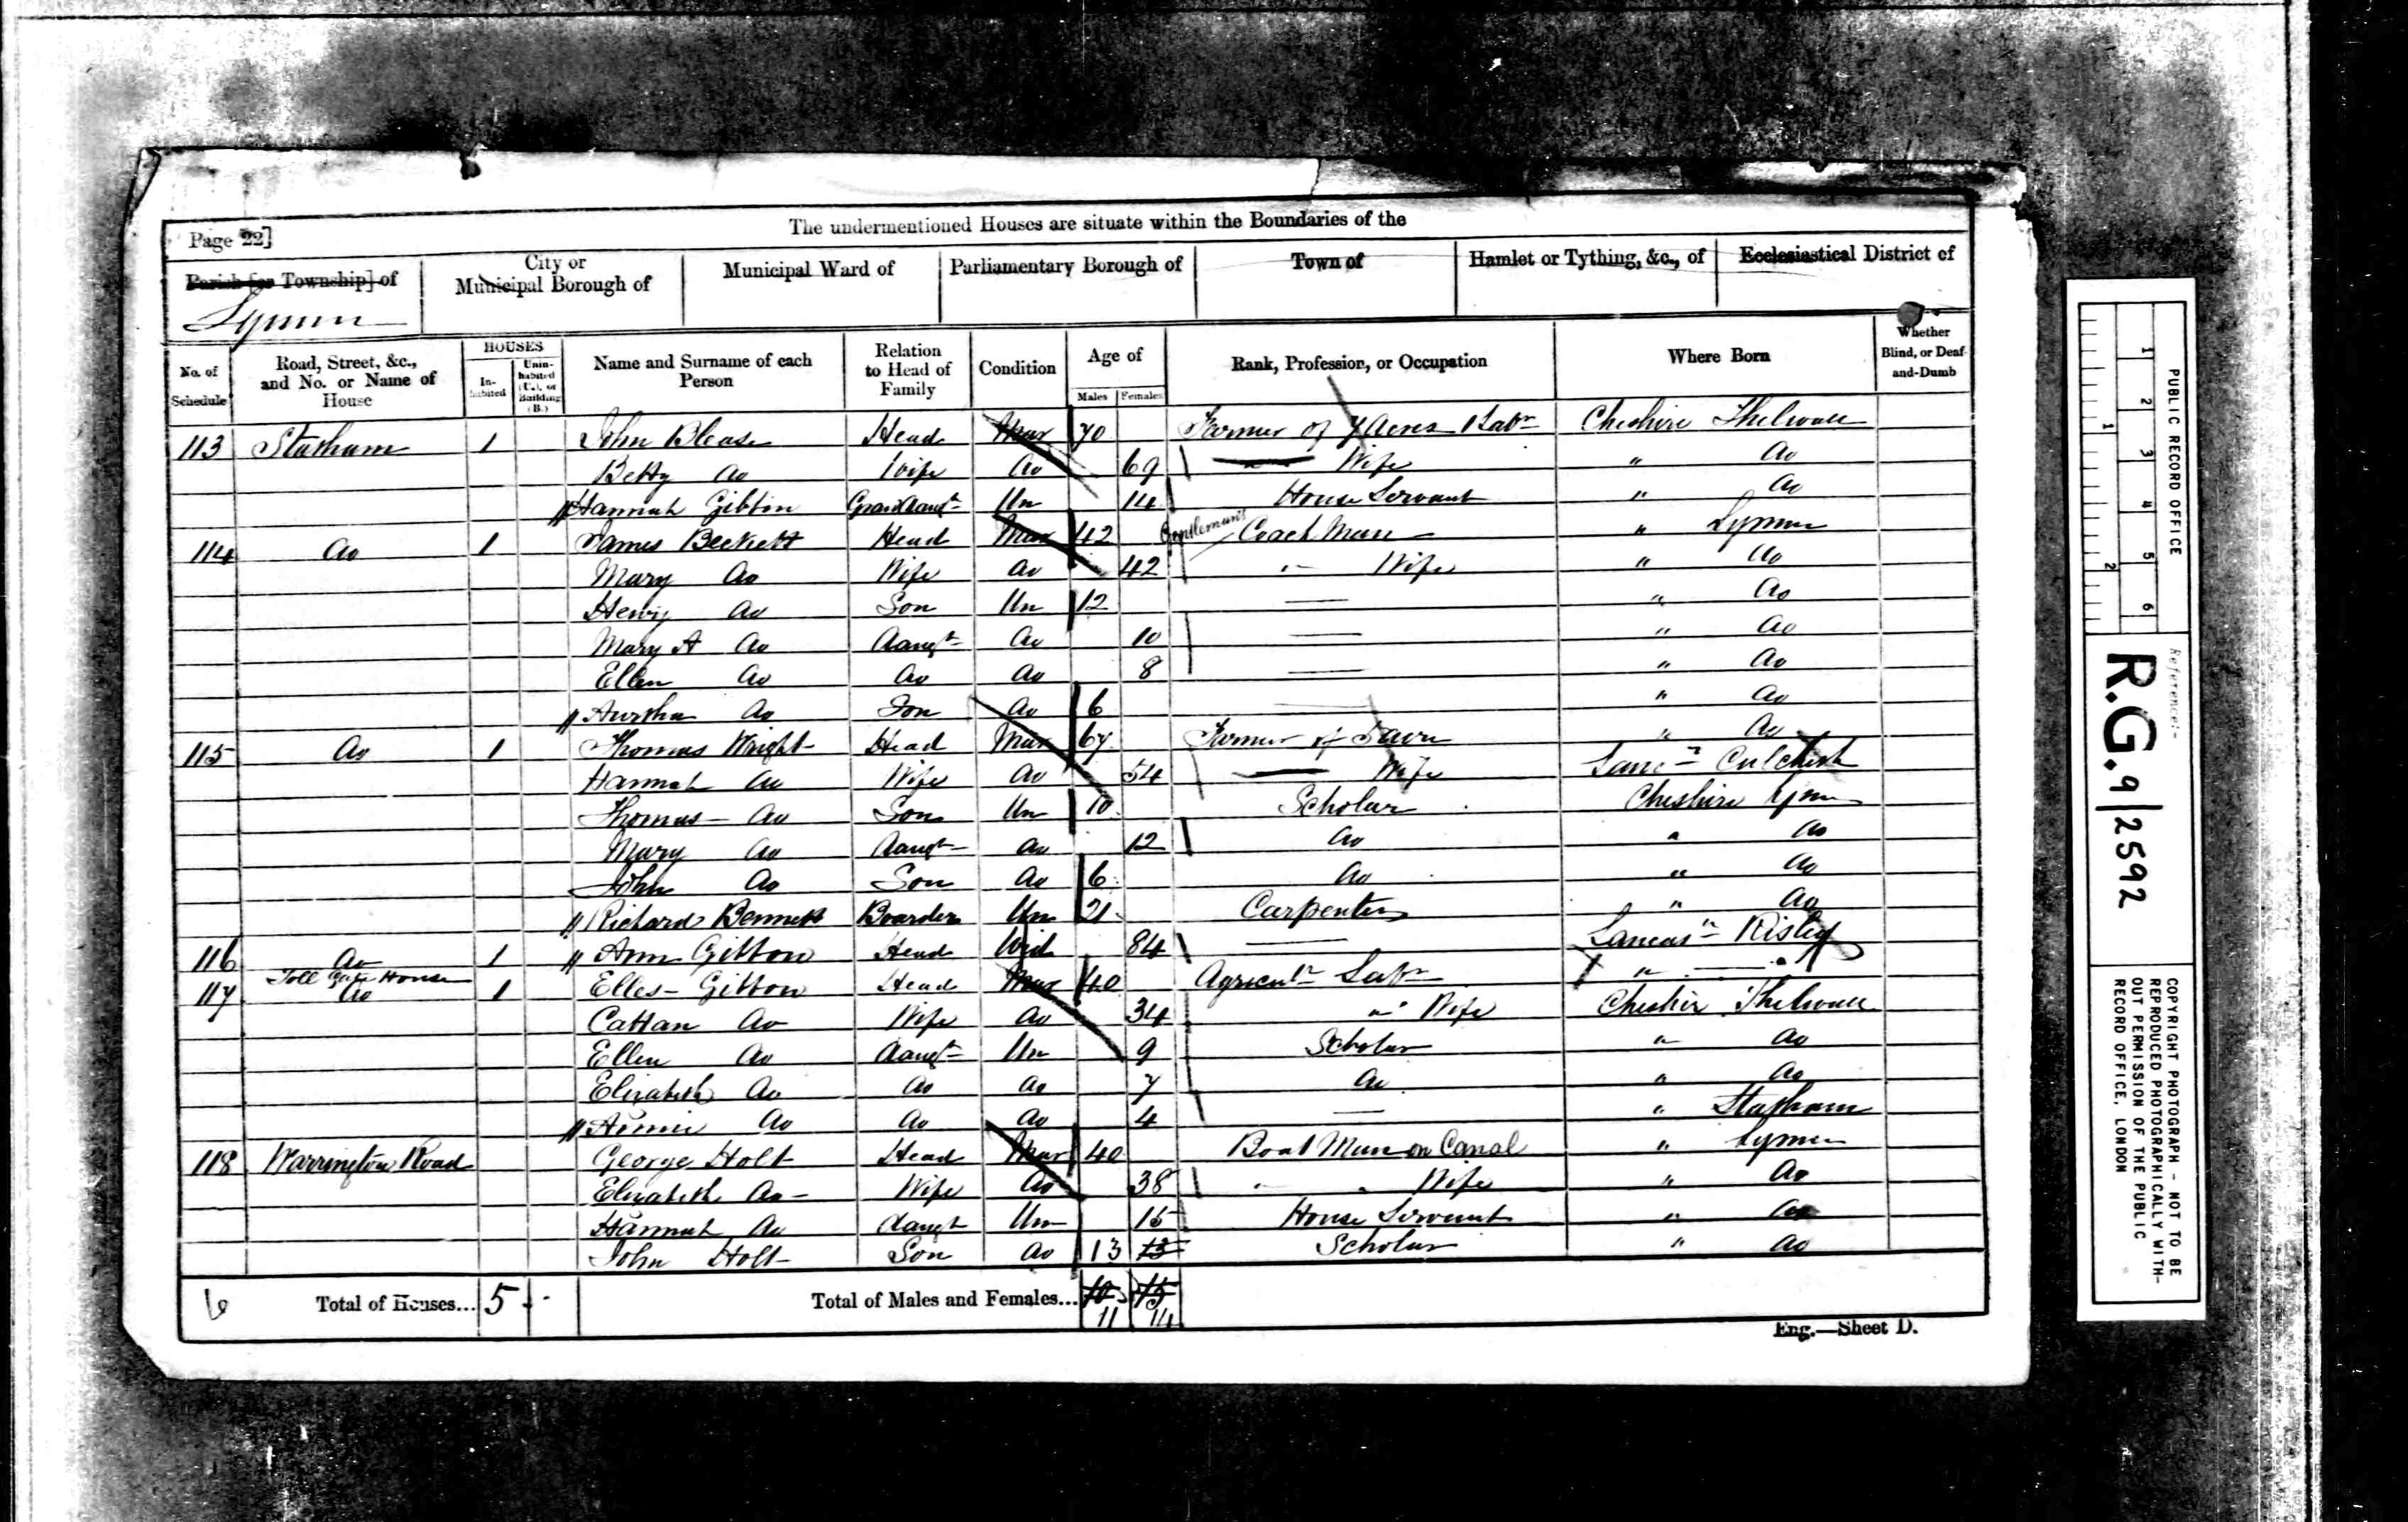 The undermentioned Houses are situate within the Boundaries of the
Page 22]
Parish [or Township] of
City or Municipal Borough of
Municipal Ward of
Parliamentary Borough of
Town of
Hamlet or Tything, &c., of
Ecclesiastical District of
Lymm
No. of Schedule
Road, Street, &c., and No. or Name of House
HOUSES
In-habited
Unin-habited (U.), or Building (B.)
Name and Surname of each Person
Relation to Head of Family
Condition
Age of
Males
Females
Rank, Profession, or Occupation
Where Born
Whether Blind, or Deaf-and-Dumb
113 Statham 1 John Blease Head Mar 70 Farmer of 7 Acres 1 Labr Cheshire Thelwall
Betty Do Wife Do 69 Wife " Do
Hannah Gibbon Granddaugt Un 14 House Servant " Do
114 Do 1 James Beckett Head Mar 42 Gentleman's Coach Man " Lymm
Mary Do Wife Do 42 " Wife " Do
Henry Do Son Un 12 — " Do
Mary A Do Daugt Do 10 — " Do
Ellen Do Do Do 8 — " Do
Do Son Do 6 — " Do
115 Do 1 Thomas Wright Head Mar 67 Farmer of " Do
Hannah Do Wife Do 54 Wife Culcheth
Thomas Do Son Un 10 Scholar Cheshire Lymm
Mary Do Daugt Do 12 Do " Do
John Do Son Do 6 Do " Do
Richard Bennett Boarder Un 21 Carpenter " Do
116 Do 1 Ann Gibbon Head Wid 84 — Lancasr Risley
117 Toll Gate House Do 1 Elles Gibbon Head Mar 40 Agricultr Labr " —
Cattan Do Wife Do 34 " Wife Cheshir Thelwall
Ellen Do Daugt Un 9 Scholar " Do
Elizabeth Do Do Do 7 Do " Do
Annie Do Do Do 4 — " Statham
118 Warrington Road George Holt Head Mar 40 Boat Man on Canal " Lymm
Elizabeth Do Wife Do 38 " " Wife " Do
Hannah Do daugt Un 15 House Servant " Do
John Holt Son Do 13 13 Scholar " Do
6 Total of Houses... 5 -
Total of Males and Females... 10 15
11 14
Eng.—Sheet D.
1 2 3 4 5 6
1 2
PUBLIC RECORD OFFICE
Reference:-
R.G. 9/2592
COPYRIGHT PHOTOGRAPH - NOT TO BE
REPRODUCED PHOTOGRAPHICALLY WITH-
OUT PERMISSION OF THE PUBLIC
RECORD OFFICE, LONDON